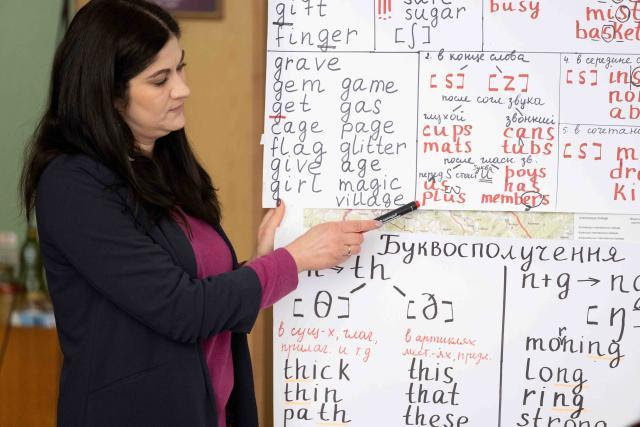 gift
finger
!!!
sugar
[ʃ]
busy
basket
grave
gem game
get gas
cage page
flag glitter
give age
girl magic
village
2. в конце слова
[s] [z]
после согл звука
глухой звонкий
cups cans
mats tubs
после гласн. зв.
перед s стоит u буква
us boys
plus has
members
4. в середине
[s] ins
ab
5 в сочетан
[s] m
dr
ki
Буквосполучення
→ th
[θ] [ð]
в сущ-х, глаг,
прилаг. и т д
в артиклях
мест.-ях, предл.
thick this
thin that
path these
n+g → n
[ŋ
morning
long
ring
strong